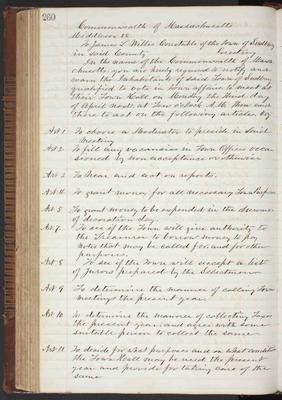 260
Commonwealth of Massachusetts
Middlesex SS
To James L. Willis Constable of the Town of Sudbury
in said County Greeting
In the name of the Commonwealth of Massa
chusetts you are hereby required to notify and
warn the Inhabitants of said Town of Sudbury
qualified to vote in Town affairs to meet at
their Town Hall, on Monday, the third day
of April next, at One o'clock P.M. then and
there to act on the following articles by
Art 1. To choose a Moderator to preside in said
meeting
Art 2 To fill any vacancies in Town Offices occa
sioned by non acceptance or otherwise
Art 3 To hear and act on reports.
Art 4. To grant money for all necessary Town Purposes
Art 5 To grant money to be expended in the observance
of decoration day.
Art 7. To see if the Town will give authority to
the Treasurer to borrow money to pay
notes that may be called for, and for other
purposes.
Art 8 To see if the Town will accept a list
of Jurors prepared by the Selectmen
Art 9 To determine the manner of calling Town
meetings the present year
Art 10 To determine the manner of collecting Taxes
the present year, and agree with some
suitable person to collect the same
Art 11 To decide for what purposes and on what conditions
the Town Hall may be used the present
year and provide for taking care of the
same